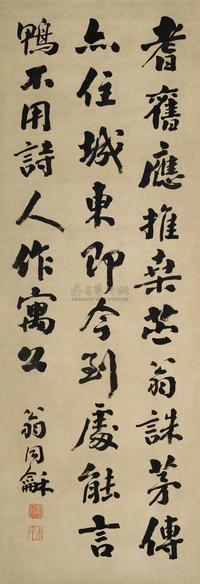 耆舊應推桑苎翁誅茅傳
亦住城東即今到處能言
鴨不用詩人作寓公
翁同龢